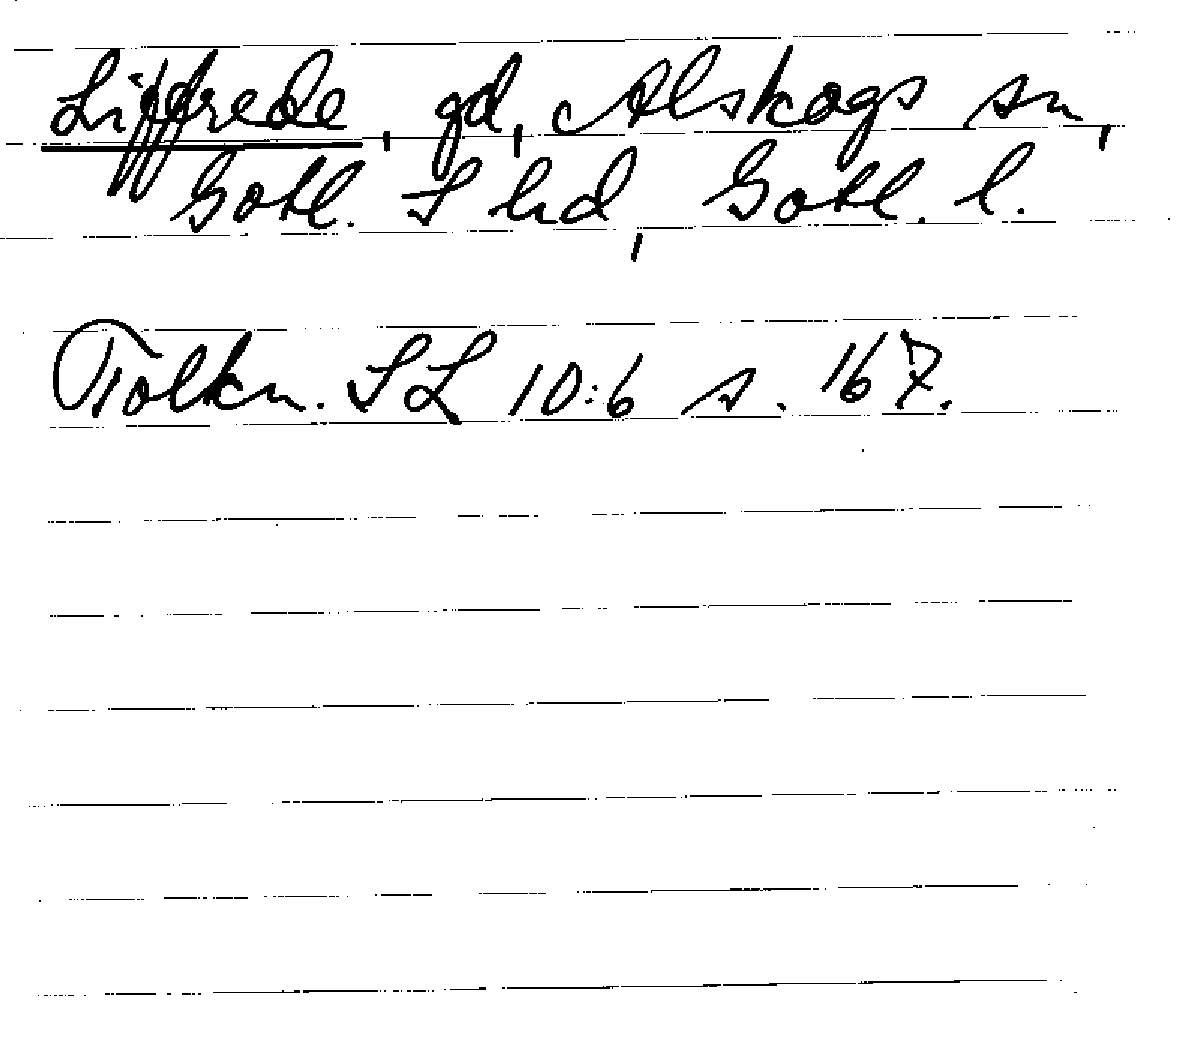 Liffrede, gd, Alskogs sn,
Gotl. S hd, Gotl. l.
Tolkn. SL 10:6 s. 167.